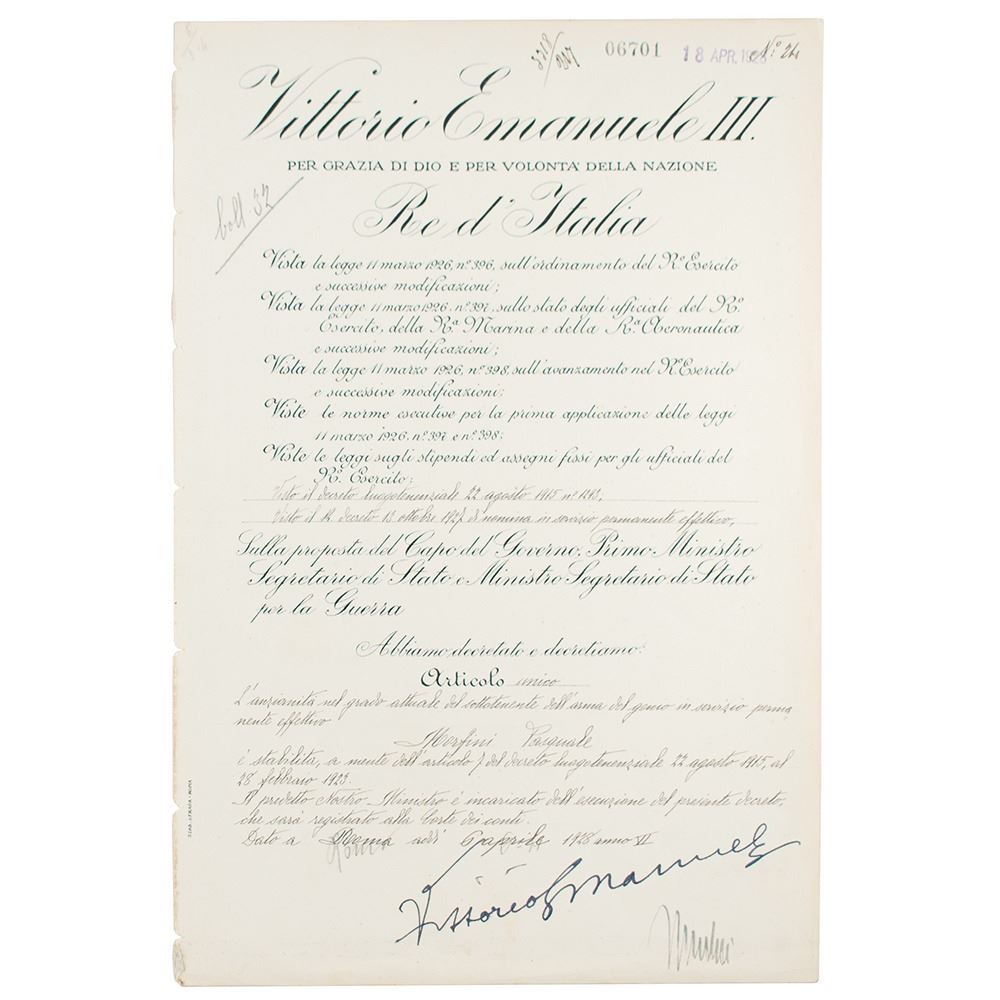 06701 18 APR. 1928 N.º 24
Vittorio Emanuele III.
PER GRAZIA DI DIO E PER VOLONTA' DELLA NAZIONE
boll 32
Re d'Italia
Vista la legge 11 marzo 1926, nº 396, sull'ordinamento del Rº Esercito
e successive modificazioni;
Vista la legge 11 marzo 1926, nº 397, sullo stato degli ufficiali del Rº
Esercito, della Rª Marina e della Rª Aeronautica
e successive modificazioni;
Vista la legge 11 marzo 1926, nº 398, sull'avanzamento nel Rº Esercito
e successive modificazioni;
Viste le norme esecutive per la prima applicazione delle leggi
11 marzo 1926, nº 397 e nº 398;
Viste le leggi sugli stipendi ed assegni fissi per gli ufficiali del
Rº Esercito;
Visto il decreto luogotenenziale 22 agosto 1915 nº 1243.
Visto il R. decreto 13 ottobre 1927 di nomina in servizio permanente effettivo,
Sulla proposta del Capo del Governo, Primo Ministro
Segretario di Stato e Ministro Segretario di Stato
per la Guerra
Abbiamo decretato e decretiamo:
Articolo unico
L'anzianità nel grado attuale del sottotenente dell'arma del genio in servizio perma
nente effettivo
Pasquale
è stabilita, a mente dell'articolo 7 del decreto luogotenenziale 22 agosto 1915, al
28 febbraio 1923.
Il predetto Nostro Ministro è incaricato dell'esecuzione del presente decreto,
che sarà registrato alla Corte dei conti.
Dato a Roma addì 6 aprile 1928 anno VI
Vittorio Emanuele